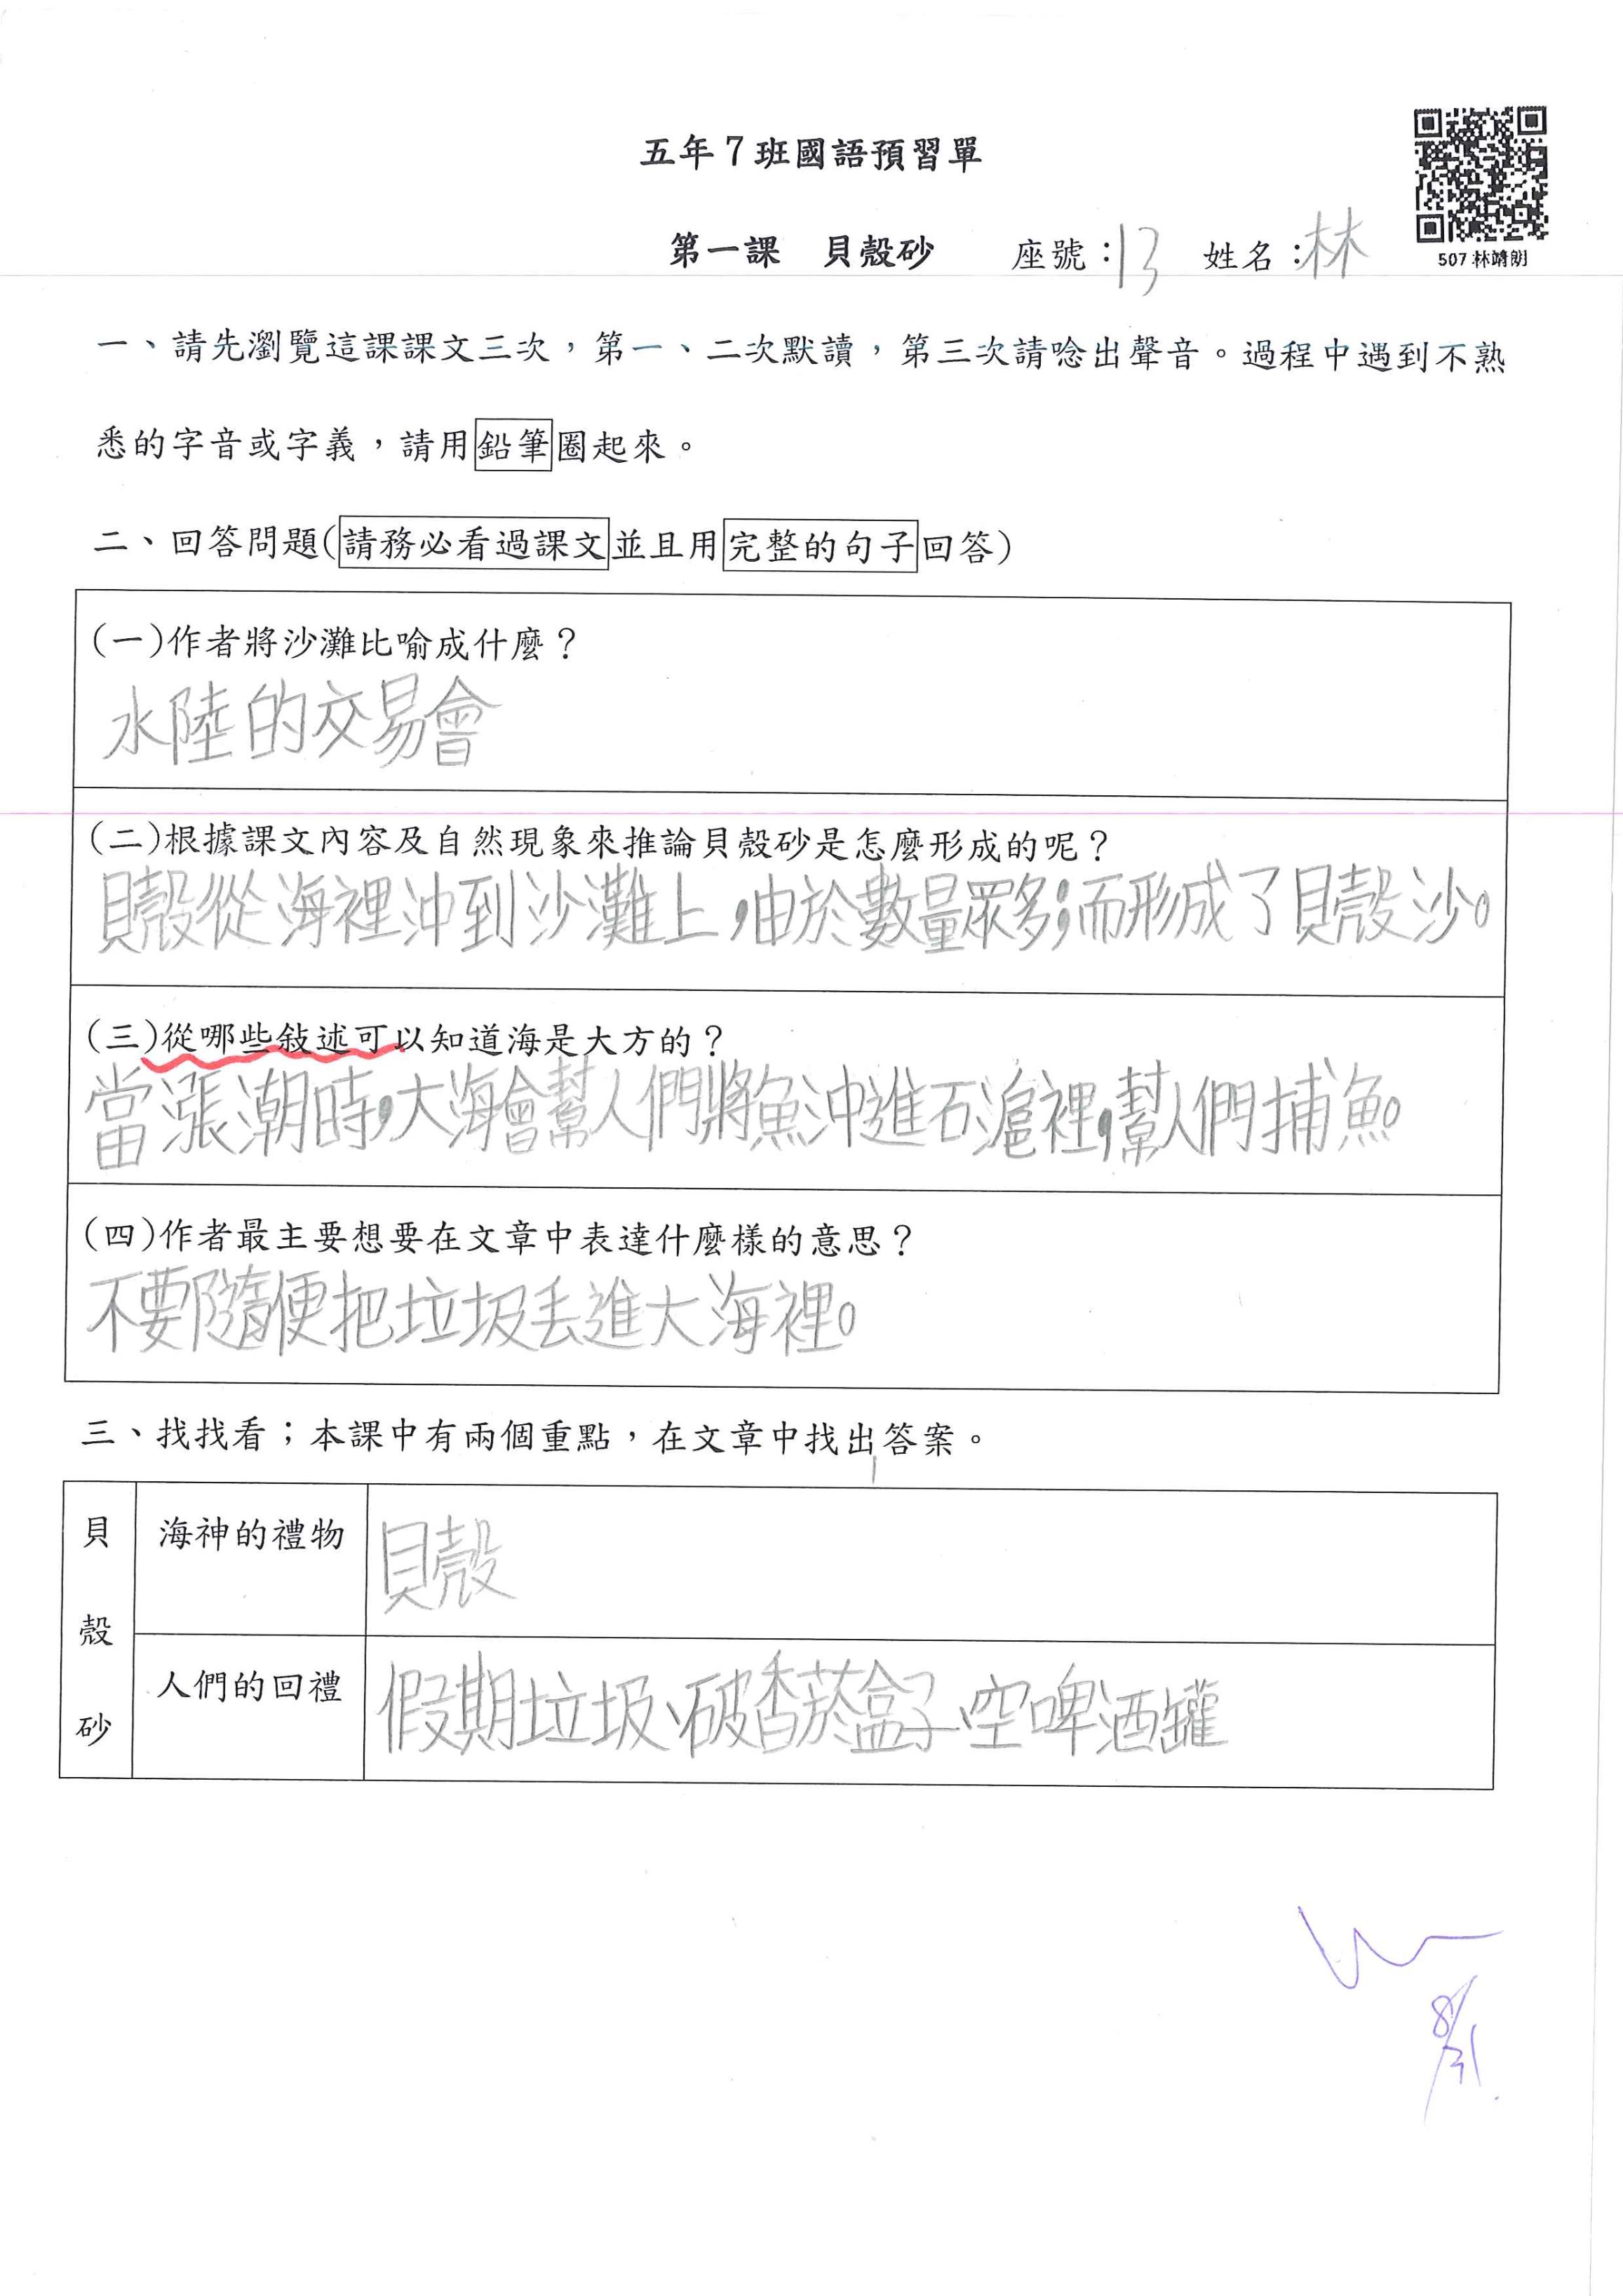 五年7班國語預習單
第一課 貝殼砂 座號:13 姓名:林
507 林靖朗
一、請先瀏覽這課課文三次，第一、二次默讀，第三次請唸出聲音。過程中遇到不熟
悉的字音或字義，請用鉛筆圈起來。
二、回答問題(請務必看過課文並且用完整的句子回答)
(一)作者將沙灘比喻成什麼？
水陸的交易會
(二)根據課文內容及自然現象來推論貝殼砂是怎麼形成的呢？
貝殼從海裡沖到沙灘上，由於數量眾多；而形成了貝殼沙。
(三)從哪些敍述可以知道海是大方的？
當漲潮時，大海會幫人們將魚沖進石滬裡，幫人們捕魚。
(四)作者最主要想要在文章中表達什麼樣的意思？
不要隨便把垃圾丟進大海裡。
三、找找看；本課中有兩個重點，在文章中找出答案。
貝殼砂
海神的禮物 貝殼
人們的回禮 假期垃圾、破香菸盒子、空啤酒罐
8/31